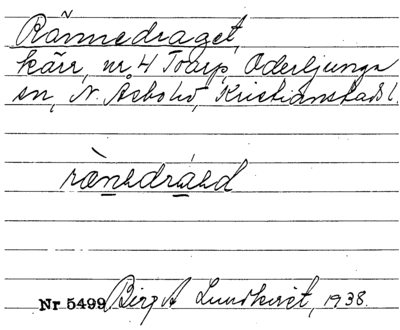 Rännedraget,
kärr, nr 4 Toarp, Oderljunga
sn, N. Åsbo hd, Kristianstads l.
Nr 5499 Birgit Lundkvist, 1938.